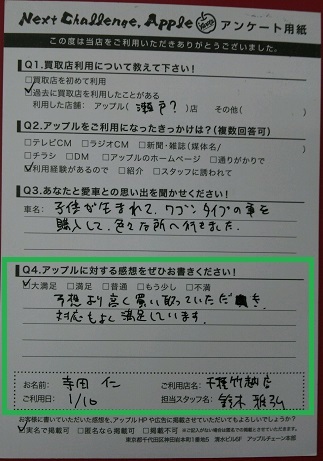 Next Challenge. Apple アンケート用紙
この度は当店をご利用いただきありがとうございました。
Q1.買取店利用について教えて下さい！
□買取店を初めて利用
☑過去に買取店を利用したことがある
利用した店舗： アップル（瀬戸?）店 その他（ ）
Q2.アップルをご利用になったきっかけは？（複数回答可）
□テレビCM □ラジオCM □新聞・雑誌（媒体名/ ）
□チラシ □DM □アップルのホームページ □通りがかりで
☑利用経験があるので □紹介 □スタッフに誘われて
Q3.あなたと愛車との思い出を聞かせください！
車名： 子供が生まれて、ワゴンタイプの車を
購入して、色々な所へ行きました。
Q4.アップルに対する感想をぜひお書きください！
☑大満足 □満足 □普通 □もう少し □不満
予想より高く買い取っていただき、
対応もよく満足しています。
お名前： 寺田 仁 ご利用店名： 千種竹越店
ご利用日： 1/10 担当スタッフ名： 鈴木 雅弘
お客様に書いていただいた感想を、アップルHPや広告に掲載させていただいてもよろしいでしょうか？
☑実名で掲載可 □匿名なら掲載可 □掲載不可
東京都千代田区神田岩本町1番地5 清水ビル8F アップルチェーン本部